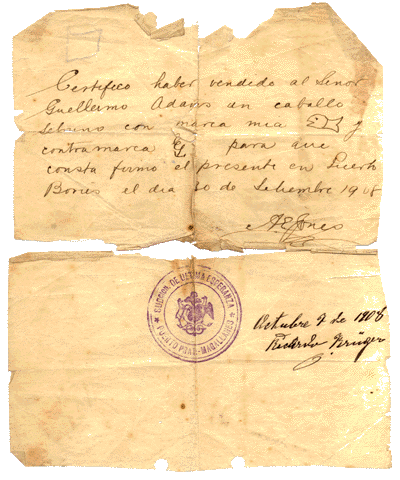 Certifico haber vendido al Señor
Guellermo Adams un caballo
sebruno con marca mia y
contramarca para que
consta firmo el presente en Puerto
Bories el dia 30 de Setiembre 1908
A E Jones
DE ULTIMA ESPERANZA
MAGALLANES
Octubre 9 de 1908
Ricardo Krüger